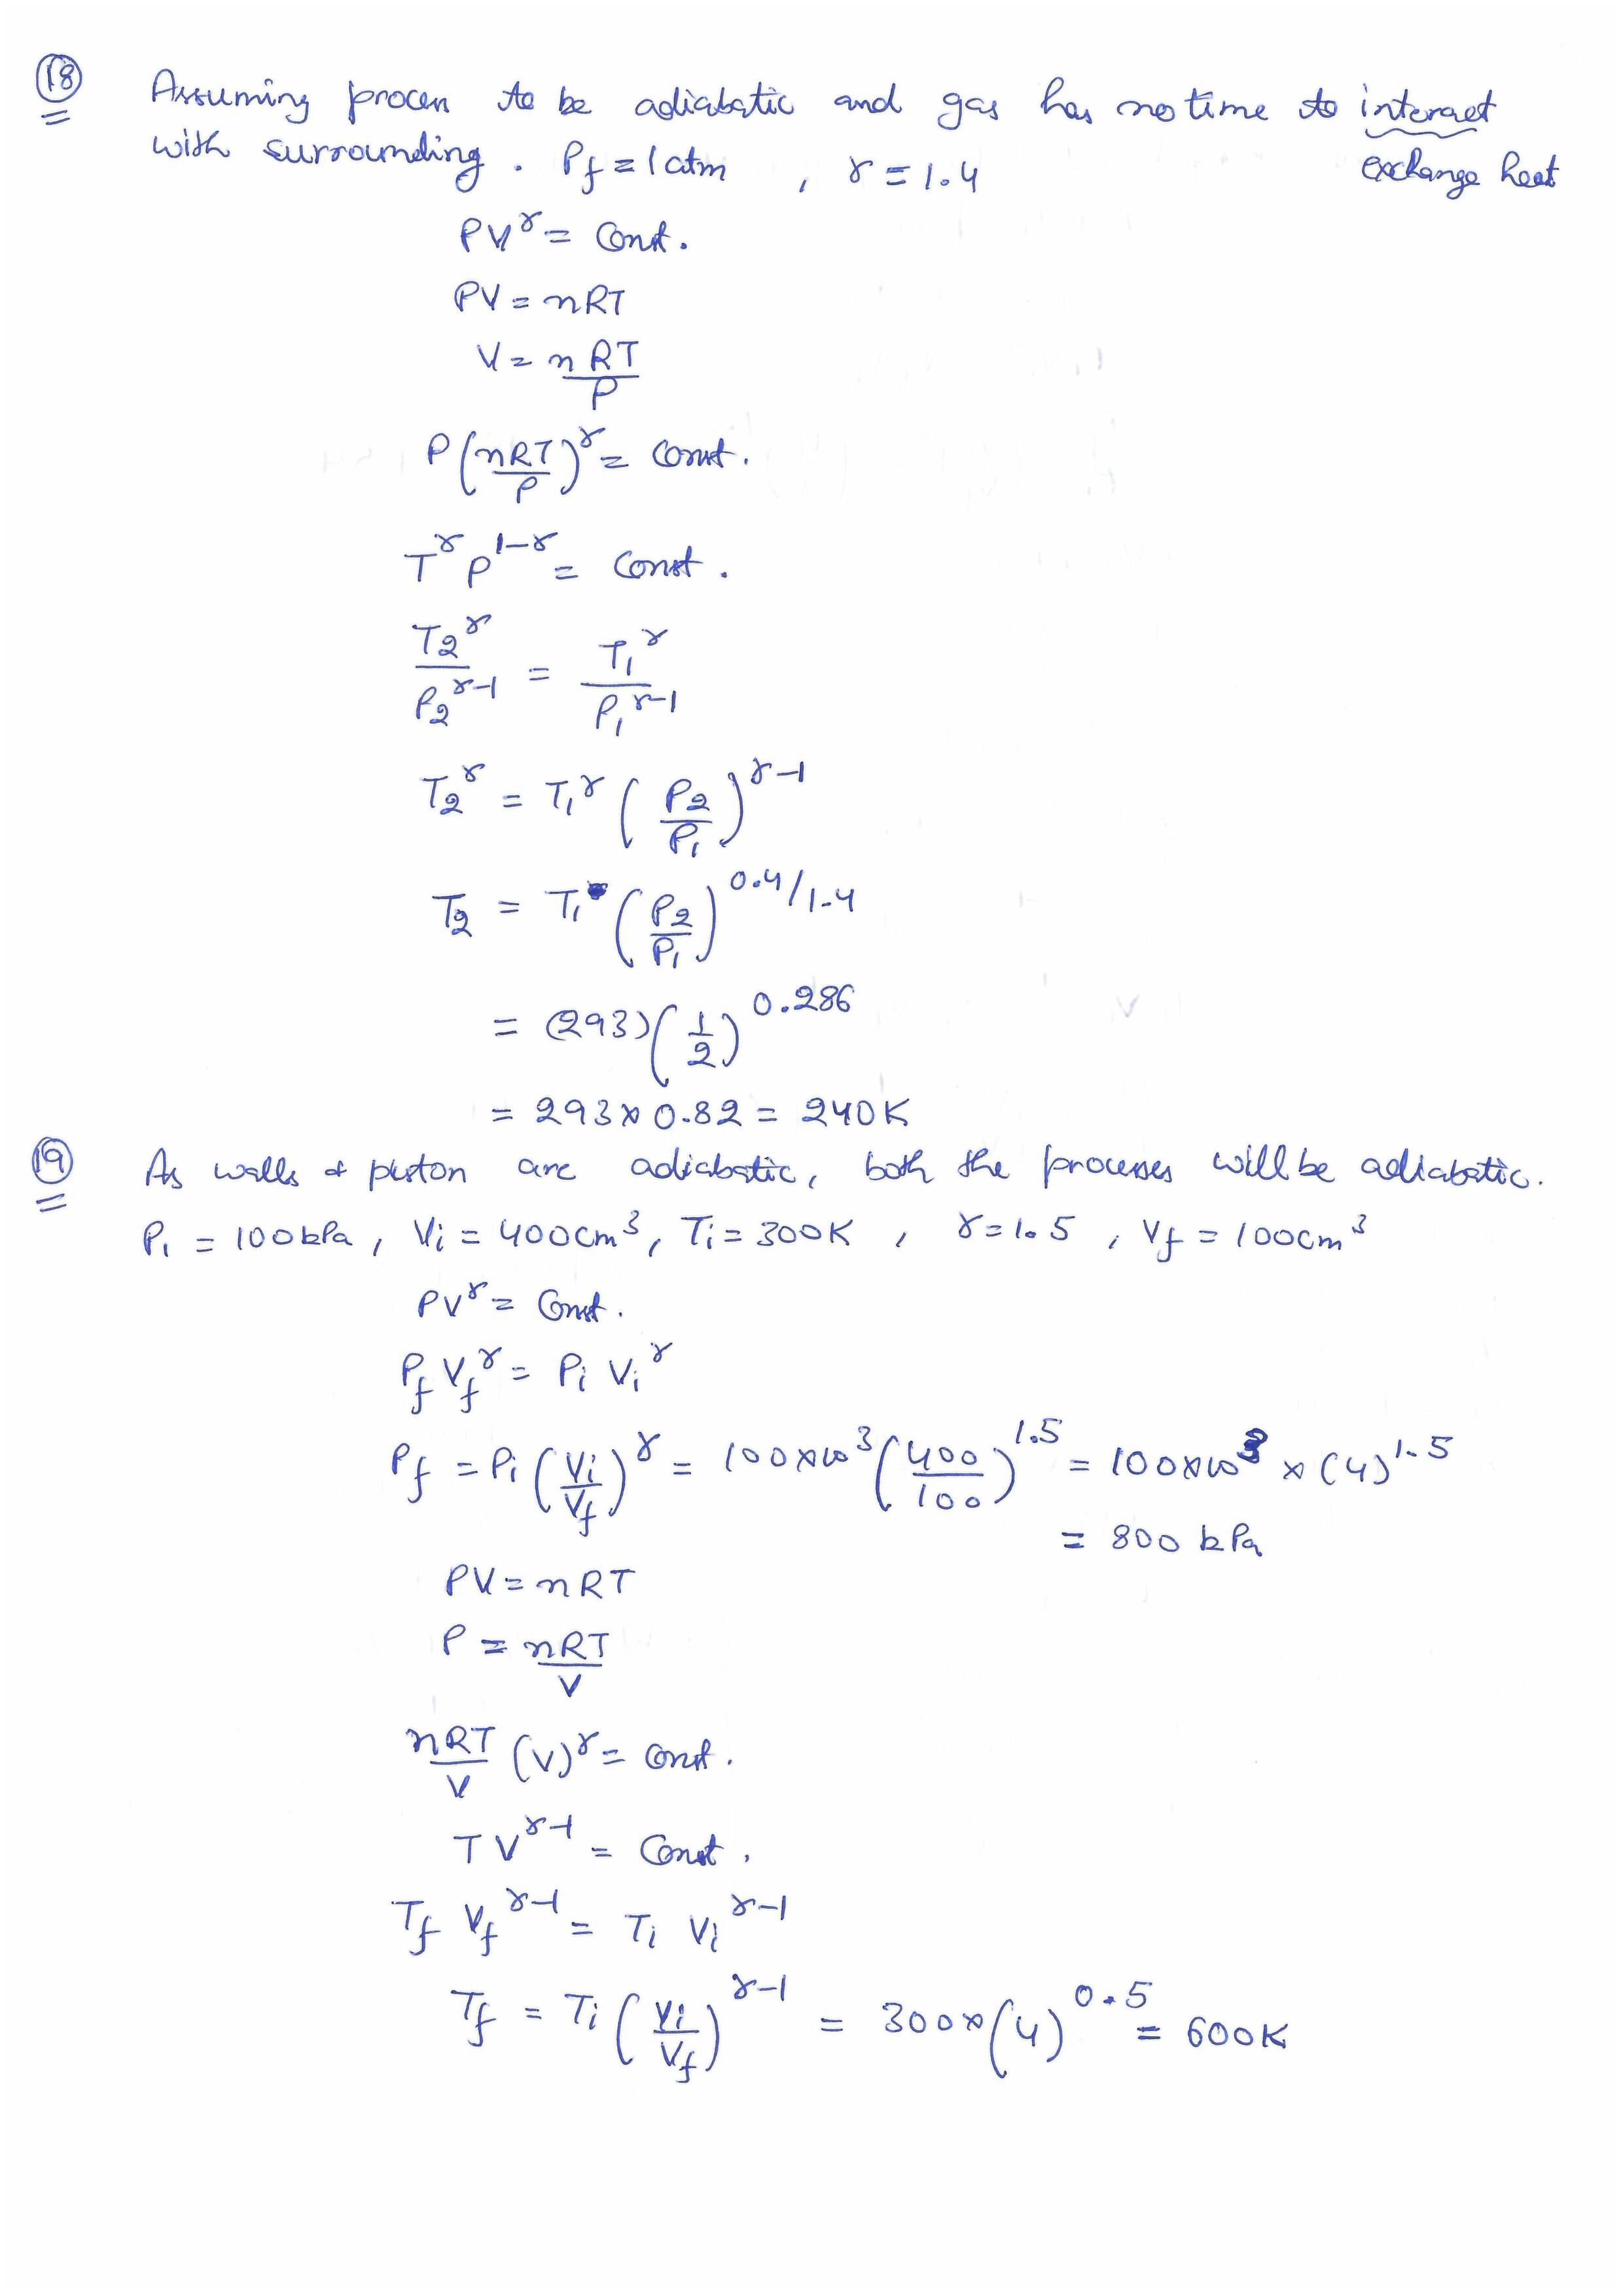 18 Assuming process to be adiabatic and gas has no time to interact
with surrounding. Pf = 1 atm , γ = 1.4 exchange heat
PV^γ = Const.
PV = nRT
V = nRT/P
P(nRT/P)^γ = Const.
T^γ P^(1-γ) = Const.
T2^γ/P2^(γ-1) = T1^γ/P1^(γ-1)
T2^γ = T1^γ (P2/P1)^(γ-1)
T2 = T1 (P2/P1)^(0.4/1.4)
= (293)(1/2)^0.286
= 293 × 0.82 = 240K
19 As walls & piston are adiabatic, both the processes will be adiabatic.
P1 = 100kPa, Vi = 400cm³, Ti = 300K , γ = 1.5 , Vf = 100cm³
PV^γ = Const.
Pf Vf^γ = Pi Vi^γ
Pf = Pi (Vi/Vf)^γ = 100×10³(400/100)^1.5 = 100×10³ × (4)^1.5
= 800 kPa
PV = nRT
P = nRT/V
nRT/V (V)^γ = Const.
TV^(γ-1) = Const.
Tf Vf^(γ-1) = Ti Vi^(γ-1)
Tf = Ti (Vi/Vf)^(γ-1) = 300×(4)^0.5 = 600K